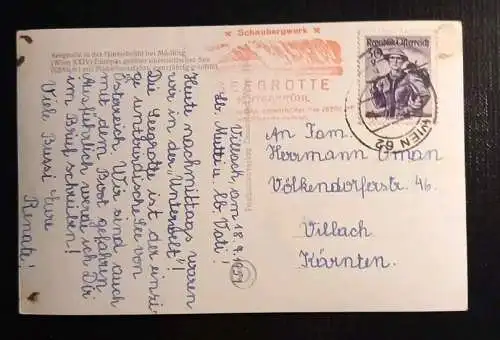 Seegrotte in der Hinterbrühl bei Mödling
(Wien XXIV) Europas größter unterirdischer See
Schaubergwerk
SEEGROTTE
HINTERBRÜHL
Republik Österreich
WIEN 62
Villach, am 18.9.1951
Lb. Mutti u. lb. Vati!
Heute nachmittags waren
wir in der „Unterwelt"!
Die Seegrotte ist der einzi-
ge unterirdische See von
Österreich. Wir sind auch
mit dem Boot gefahren.
Ausführlich werde ich Dir
im Brief schreiben!
Viele Bussi Eure
Renate!
An Fam.
Hermann Oman
Völkendorferstr. 46.
Villach
Kärnten.